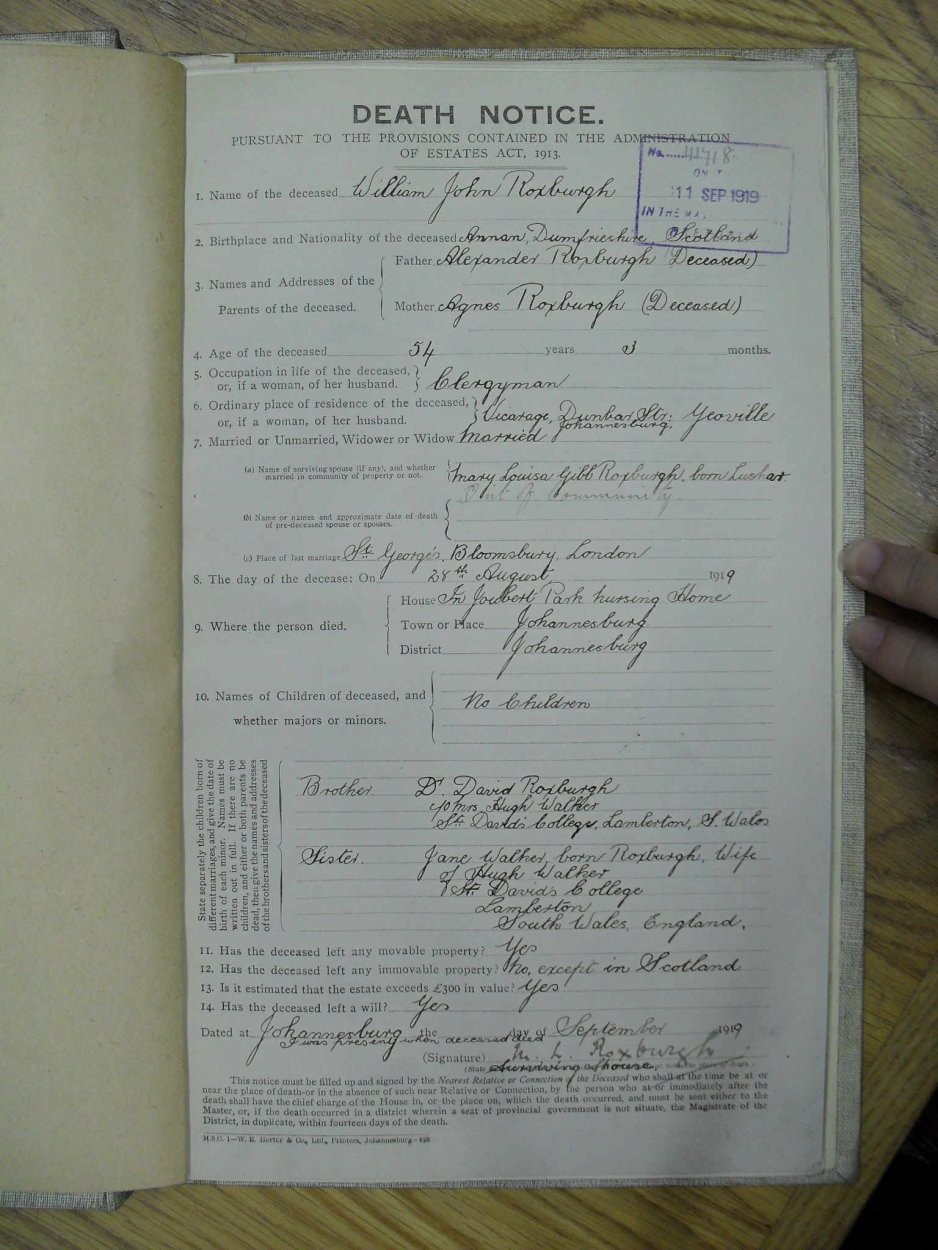 DEATH NOTICE.
PURSUANT TO THE PROVISIONS CONTAINED IN THE ADMINISTRATION
OF ESTATES ACT, 1913.
No. 42718
11 SEP 1919
IN THE
1. Name of the deceased William John Roxburgh
2. Birthplace and Nationality of the deceased Annan, Dumfrieshire, Scotland
3. Names and Addresses of the
Parents of the deceased.
Father Alexander Roxburgh (Deceased)
Mother Agnes Roxburgh (Deceased)
4. Age of the deceased 54 years 3 months.
5. Occupation in life of the deceased,
or, if a woman, of her husband.
Clergyman
6. Ordinary place of residence of the deceased,
or, if a woman, of her husband.
Vicarage, Dunbar Str: Yeoville
Johannesburg.
7. Married or Unmarried, Widower or Widow Married
(a) Name of surviving spouse (if any), and whether
married in community of property or not.
Mary Louisa Gibb Roxburgh, born
Out of Community.
(b) Name or names and approximate date of death
of pre-deceased spouse or spouses.
(c) Place of last marriage St. George's, Bloomsbury, London
8. The day of the decease: On 28th August, 1919
9. Where the person died.
House In Joubert Park nursing Home
Town or Place Johannesburg
District Johannesburg
10. Names of Children of deceased, and
whether majors or minors.
No Children
State separately the children born of
different marriages, and give the date of
birth of each minor. Names must be
written out in full. If there are no
children, and either or both parents be
dead, then give the names and addresses
of the brothers and sisters of the deceased
Brother. Dr. David Roxburgh
c/o Mrs. Hugh Walker
St. David's College, Lamberton, S. Wales
Sister. Jane Walker, born Roxburgh, Wife
of Hugh Walker
St. Davids College
Lamberton
South Wales, England.
11. Has the deceased left any movable property? Yes
12. Has the deceased left any immovable property? No, except in Scotland
13. Is it estimated that the estate exceeds £300 in value? Yes
14. Has the deceased left a will? Yes
Dated at Johannesburg the day of September 1919
I was present when deceased died
(Signature) M. L. Roxburgh
Surviving Spouse.
This notice must be filled up and signed by the Nearest Relative or Connection of the Deceased who shall at the time be at or
near the place of death-or in the absence of such near Relative or Connection, by the person who at or immediately after the
death shall have the chief charge of the House in, or the place on, which the death occurred, and must be sent either to the
Master, or, if the death occurred in a district wherein a seat of provincial government is not situate, the Magistrate of the
District, in duplicate, within fourteen days of the death.
M.S.C. 1—W. E. Horter & Co., Ltd., Printers, Johannesburg—